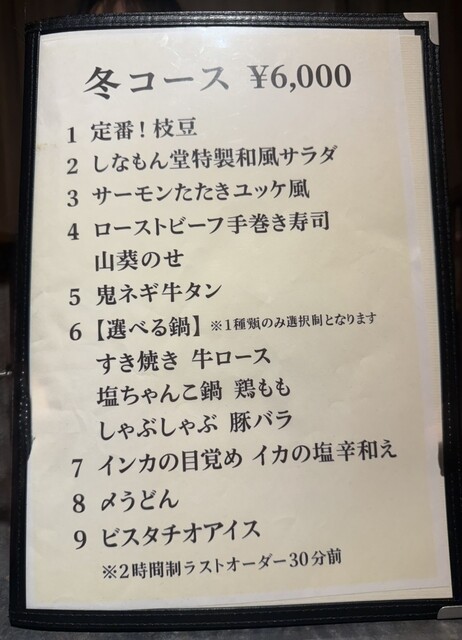 冬コース ¥6,000
1 定番！枝豆
2 しなもん堂特製和風サラダ
3 サーモンたたきユッケ風
4 ローストビーフ手巻き寿司
山葵のせ
5 鬼ネギ牛タン
6 【選べる鍋】※1種類のみ選択制となります
すき焼き 牛ロース
塩ちゃんこ鍋 鶏もも
しゃぶしゃぶ 豚バラ
7 インカの目覚め イカの塩辛和え
8 〆うどん
9 ピスタチオアイス
※2時間制ラストオーダー30分前